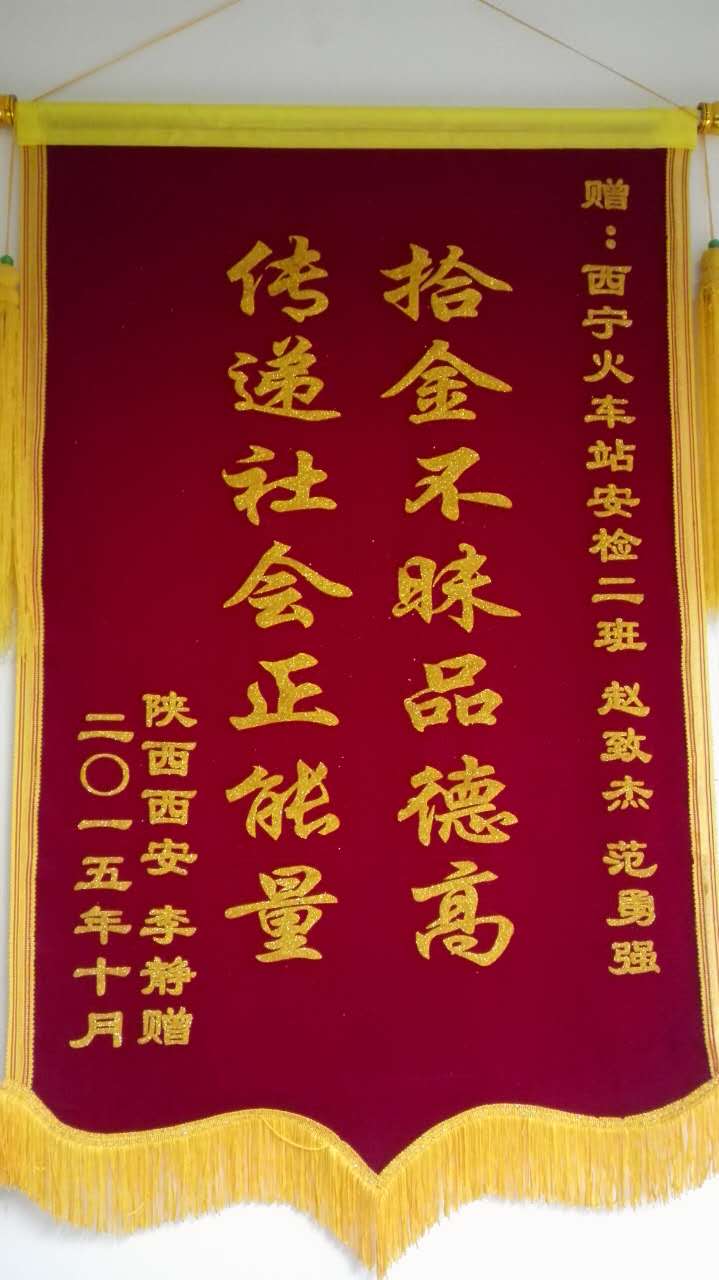 赠：西宁火车站安检二班 赵致杰 范勇强
拾金不昧品德高
传递社会正能量
陕西西安 李静赠
二〇一五年十月